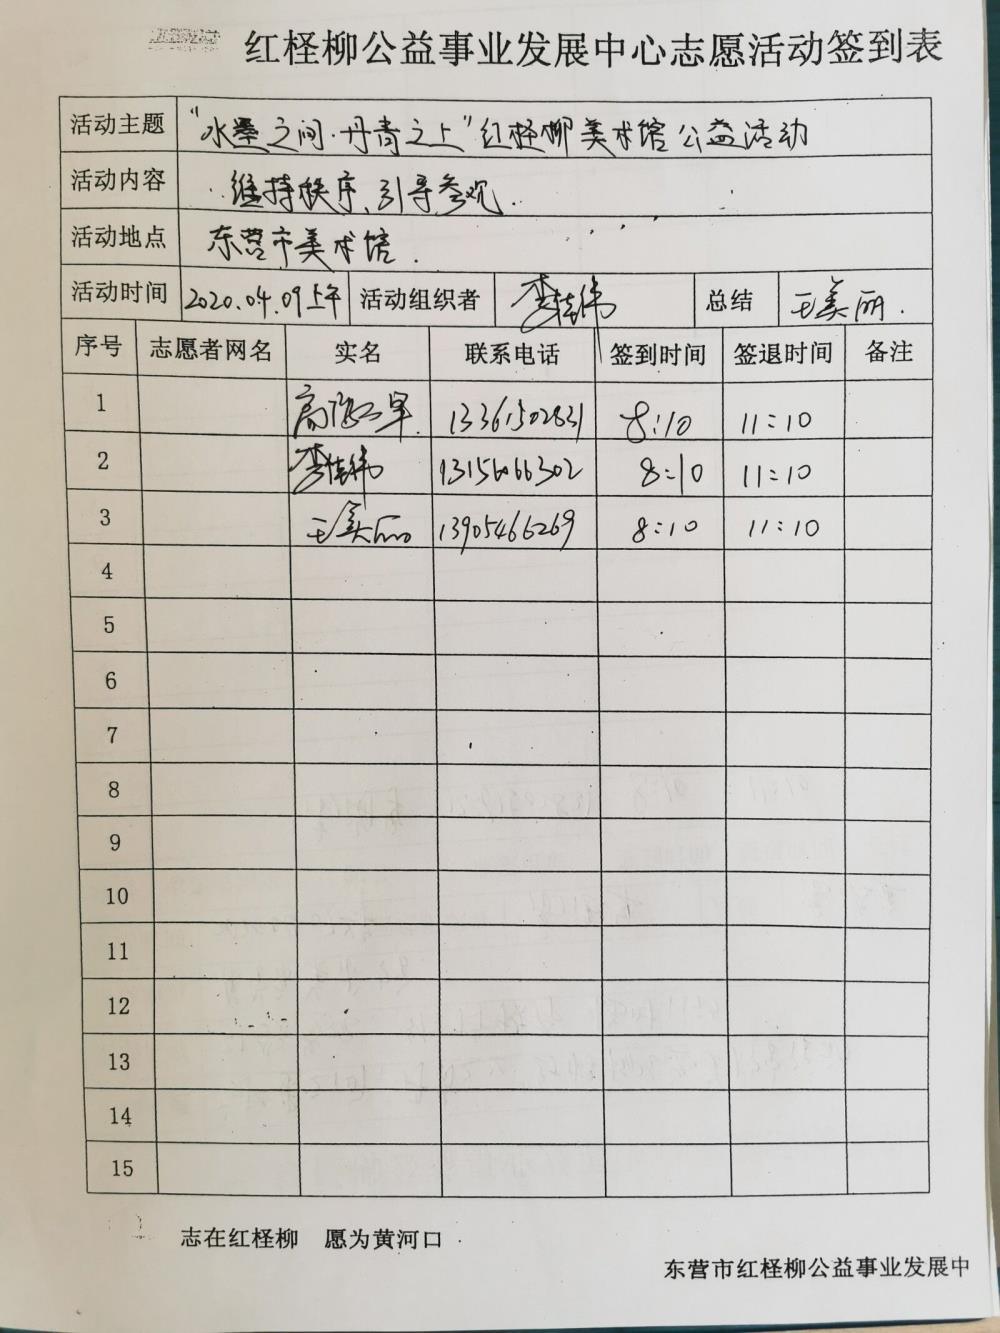 红柽柳公益事业发展中心志愿活动签到表
活动主题 "水墨之间·丹青之上"红柽柳美术馆公益活动
活动内容 维持秩序、引导参观.
活动地点 东营市美术馆.
活动时间 2020.04.09上午 活动组织者 李佳伟 总结 王美丽.
序号 志愿者网名 实名 联系电话 签到时间 签退时间 备注
1 13361502831 8:10 11:10
2 李佳伟 13156066302 8:10 11:10
3 王美丽 13905466269 8:10 11:10
4
5
6
7
8
9
10
11
12
13
14
15
志在红柽柳 愿为黄河口
东营市红柽柳公益事业发展中